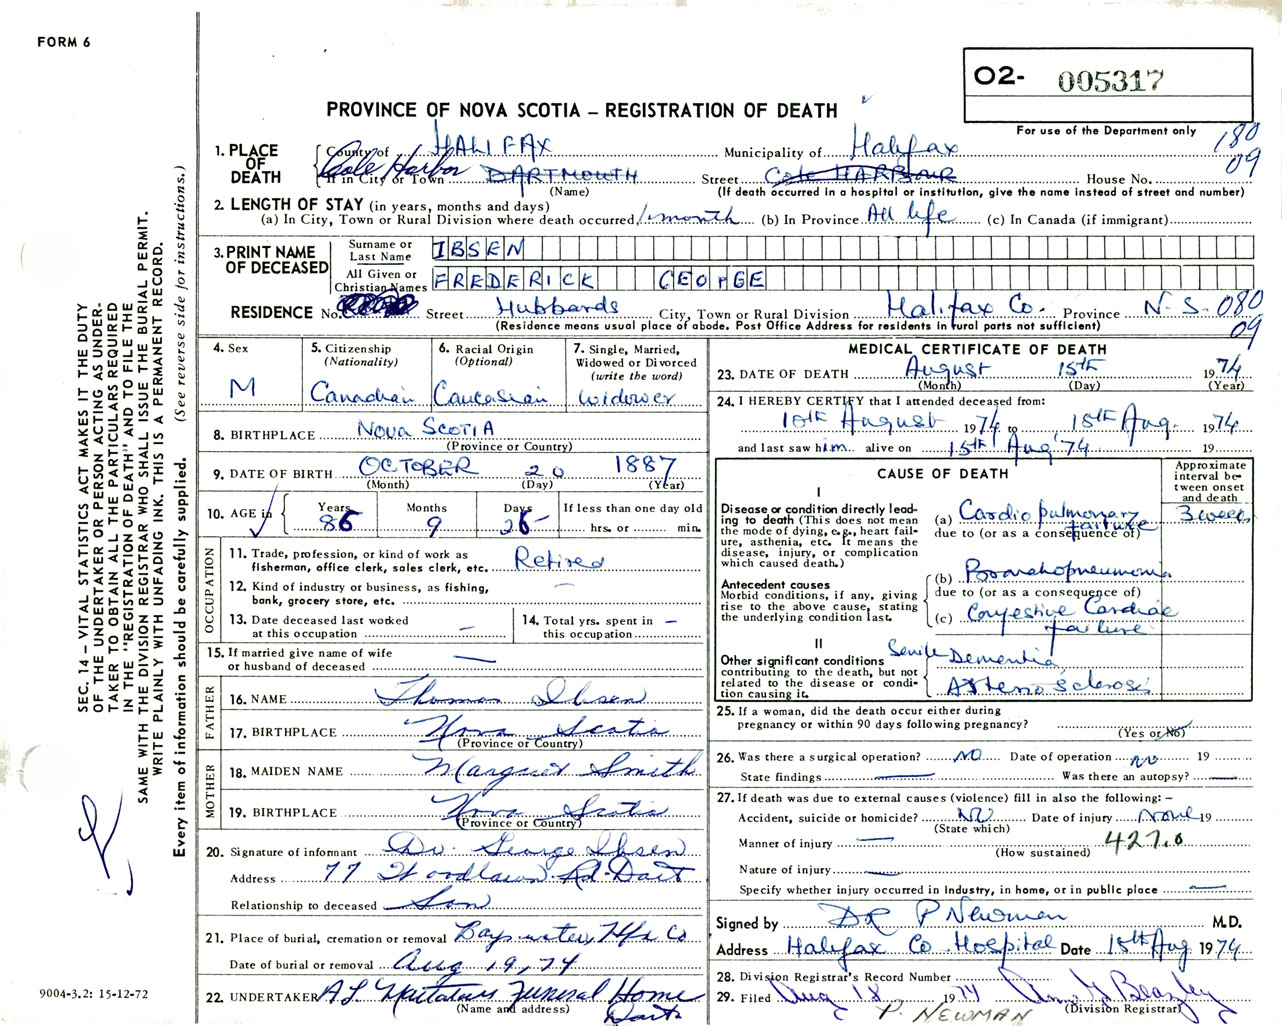 FORM 6
O2- 005317
For use of the Department only
PROVINCE OF NOVA SCOTIA – REGISTRATION OF DEATH
180
09
1. PLACE OF DEATH County of HALIFAX Municipality of Halifax
Cole Harbor If in City or Town DARTMOUTH Street COLE HARBOUR House No.
(Name) (If death occurred in a hospital or institution, give the name instead of street and number)
2. LENGTH OF STAY (in years, months and days)
(a) In City, Town or Rural Division where death occurred 1 month (b) In Province All life (c) In Canada (if immigrant)
3. PRINT NAME OF DECEASED
Surname or Last Name IBSEN
All Given or Christian Names FREDERICK GEORGE
RESIDENCE No. Street Hubbards City, Town or Rural Division Halifax Co. Province N.S. 080
09
(Residence means usual place of abode. Post Office Address for residents in rural parts not sufficient)
4. Sex M
5. Citizenship (Nationality) Canadian
6. Racial Origin (Optional) Caucasian
7. Single, Married, Widowed or Divorced (write the word) Widower
8. BIRTHPLACE NOVA SCOTIA
(Province or Country)
9. DATE OF BIRTH OCTOBER 20 1887
(Month) (Day) (Year)
10. AGE in Years 86 Months 9 Days 25 If less than one day old
hrs. or min.
OCCUPATION
11. Trade, profession, or kind of work as fisherman, office clerk, sales clerk, etc. Retired
12. Kind of industry or business, as fishing, bank, grocery store, etc. —
13. Date deceased last worked at this occupation —
14. Total yrs. spent in this occupation —
15. If married give name of wife or husband of deceased —
FATHER
16. NAME Thomas Ibsen
17. BIRTHPLACE Nova Scotia
(Province or Country)
MOTHER
18. MAIDEN NAME Margaret Smith
19. BIRTHPLACE Nova Scotia
(Province or Country)
20. Signature of informant Dr. George Ibsen
Address 77 Woodlawn Rd. Dart
Relationship to deceased Son
21. Place of burial, cremation or removal Bayswater, Hfx Co
Date of burial or removal Aug 19, 74
22. UNDERTAKER Funeral Home
(Name and address) Dart.
MEDICAL CERTIFICATE OF DEATH
23. DATE OF DEATH August 15th 1974
(Month) (Day) (Year)
24. I HEREBY CERTIFY that I attended deceased from:
10th August 1974 to 15th Aug. 1974
and last saw him alive on 15th Aug '74 19
CAUSE OF DEATH
Approximate interval between onset and death
I
Disease or condition directly leading to death (This does not mean the mode of dying, e.g., heart failure, asthenia, etc. It means the disease, injury, or complication which caused death.)
(a) Cardio pulmonary failure 3 weeks
due to (or as a consequence of)
Antecedent causes
Morbid conditions, if any, giving rise to the above cause, stating the underlying condition last.
(b) Bronchopneumonia
due to (or as a consequence of)
(c) Congestive Cardiac failure
II
Other significant conditions contributing to the death, but not related to the disease or condition causing it.
Senile Dementia
Arteriosclerosis
25. If a woman, did the death occur either during pregnancy or within 90 days following pregnancy?
(Yes or No)
26. Was there a surgical operation? NO Date of operation NO 19
State findings — Was there an autopsy? —
27. If death was due to external causes (violence) fill in also the following: –
Accident, suicide or homicide? NO Date of injury None 19
(State which)
Manner of injury — 427.0
(How sustained)
Nature of injury —
Specify whether injury occurred in industry, in home, or in public place —
Signed by DR P Newman M.D.
Address Halifax Co. Hospital Date 15th Aug 1974
28. Division Registrar's Record Number
29. Filed Aug 18 1974
P. NEWMAN (Division Registrar)
SEC. 14 – VITAL STATISTICS ACT MAKES IT THE DUTY
OF THE UNDERTAKER OR PERSON ACTING AS UNDER-
TAKER TO OBTAIN ALL THE PARTICULARS REQUIRED
IN THE "REGISTRATION OF DEATH" AND TO FILE THE
SAME WITH THE DIVISION REGISTRAR WHO SHALL ISSUE THE BURIAL PERMIT.
WRITE PLAINLY WITH UNFADING INK. THIS IS A PERMANENT RECORD.
Every item of information should be carefully supplied. (See reverse side for instructions.)
9004-3.2: 15-12-72